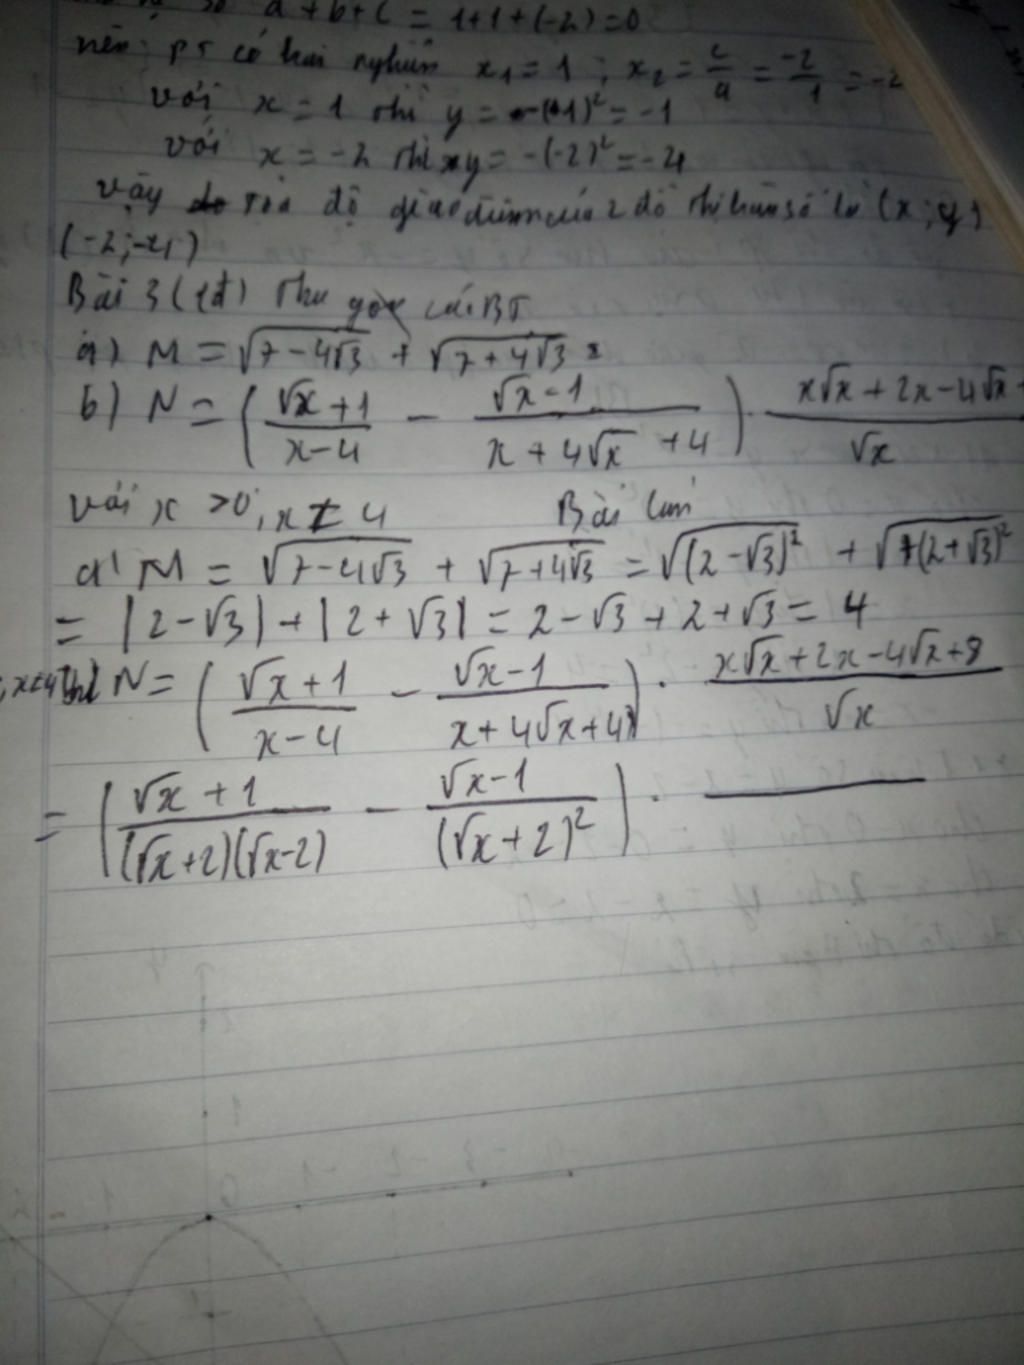 a + b + c = 1 + 1 + (-2) = 0
nên pt có hai nghiệm x₁ = 1 ; x₂ = c/a = -2/1 = -2
với x = 1 thì y = -(1)² = -1
với x = -2 thì y = -(-2)² = -4
vậy toạ độ giao điểm của 2 đồ thị hàm số là (x ; y)
(-2; -4)
Bài 3 (1đ) Thu gọn các BT
a) M = √(7 - 4√3) + √(7 + 4√3)
b) N = ((√x + 1)/(x - 4) - (√x - 1)/(x + 4√x + 4)) . (x√x + 2x - 4√x)/√x
với x > 0; x ≠ 4 Bài làm
a) M = √(7 - 4√3) + √(7 + 4√3) = √((2 - √3)²) + √((2 + √3)²)
= |2 - √3| + |2 + √3| = 2 - √3 + 2 + √3 = 4
thì N = ((√x + 1)/(x - 4) - (√x - 1)/(x + 4√x + 4)) . (x√x + 2x - 4√x + 8)/√x
= ((√x + 1)/((√x + 2)(√x - 2)) - (√x - 1)/(√x + 2)²) .